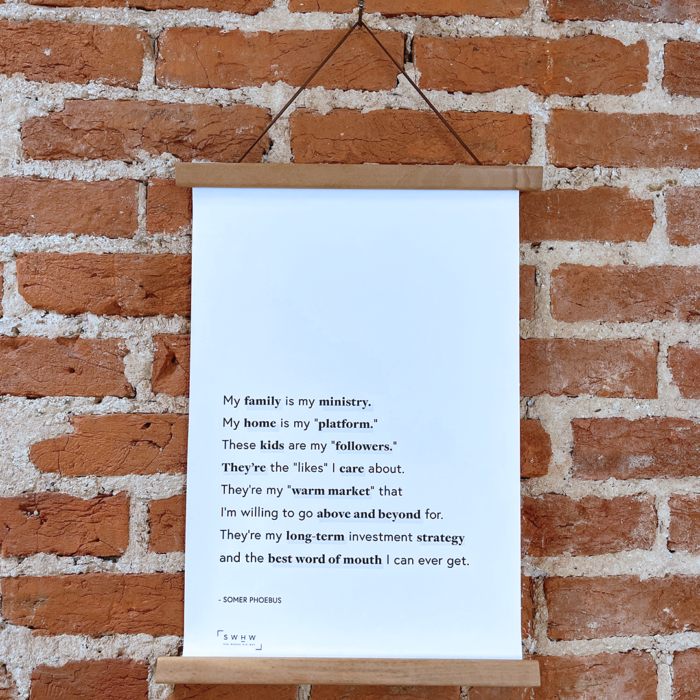 My family is my ministry.
My home is my "platform."
These kids are my "followers."
They're the "likes" I care about.
They're my "warm market" that
I'm willing to go above and beyond for.
They're my long-term investment strategy
and the best word of mouth I can ever get.
- SOMER PHOEBUS
SWHW